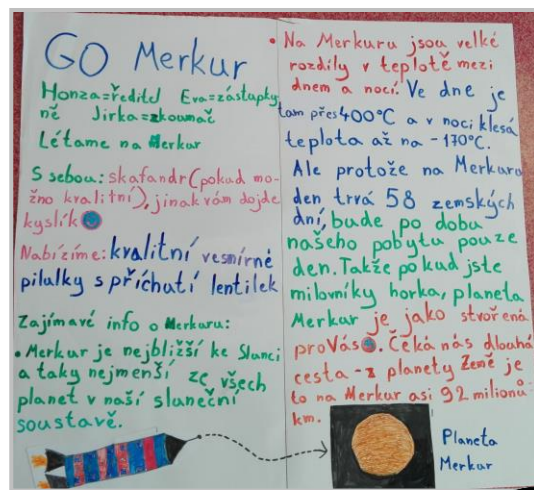 GO Merkur
Honza=ředitel Eva=zástupky
ně Jirka=zkoumač
Létame na Merkur
S sebou: skafandr (pokud mo-
žno kvalitní), jinak vám dojde
kyslík
Nabízíme: kvalitní vesmírné
pilulky s příchutí lentilek
Zajímavé info o Merkuru:
• Merkur je nejbližší ke Slunci
a taky nejmenší ze všech
planet v naší sluneční
soustavě.
• Na Merkuru jsou velké
rozdíly v teplotě mezi
dnem a nocí. Ve dne je
tam přes 400°C a v noci klesá
teplota až na -170°C.
Ale protože na Merkuru
den trvá 58 zemských
dní, bude po dobu
našeho pobytu pouze
den. Takže pokud jste
milovníky horka, planeta
Merkur je jako stvořená
pro Vás. Čeká nás dlouhá
cesta - z planety Země je
to na Merkur asi 92 milionů
km.
Planeta
Merkur